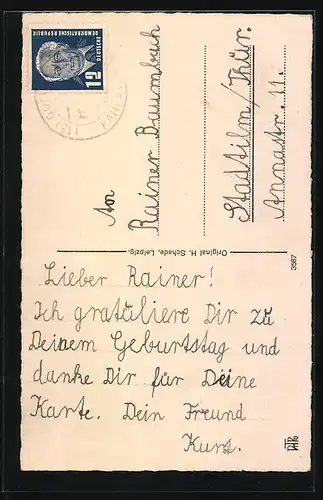 Lieber Rainer!
Ich gratuliere Dir zu
Deinem Geburtstag und
danke Dir für Deine
Karte. Dein Freund
Kurt.
Original H. Schade, Leipzig.
3987
An
Rainer Baumbach
Stadtilm/Thür.
Annastr. 11.
DEUTSCHE
DEMOKRATISCHE REPUBLIK
12